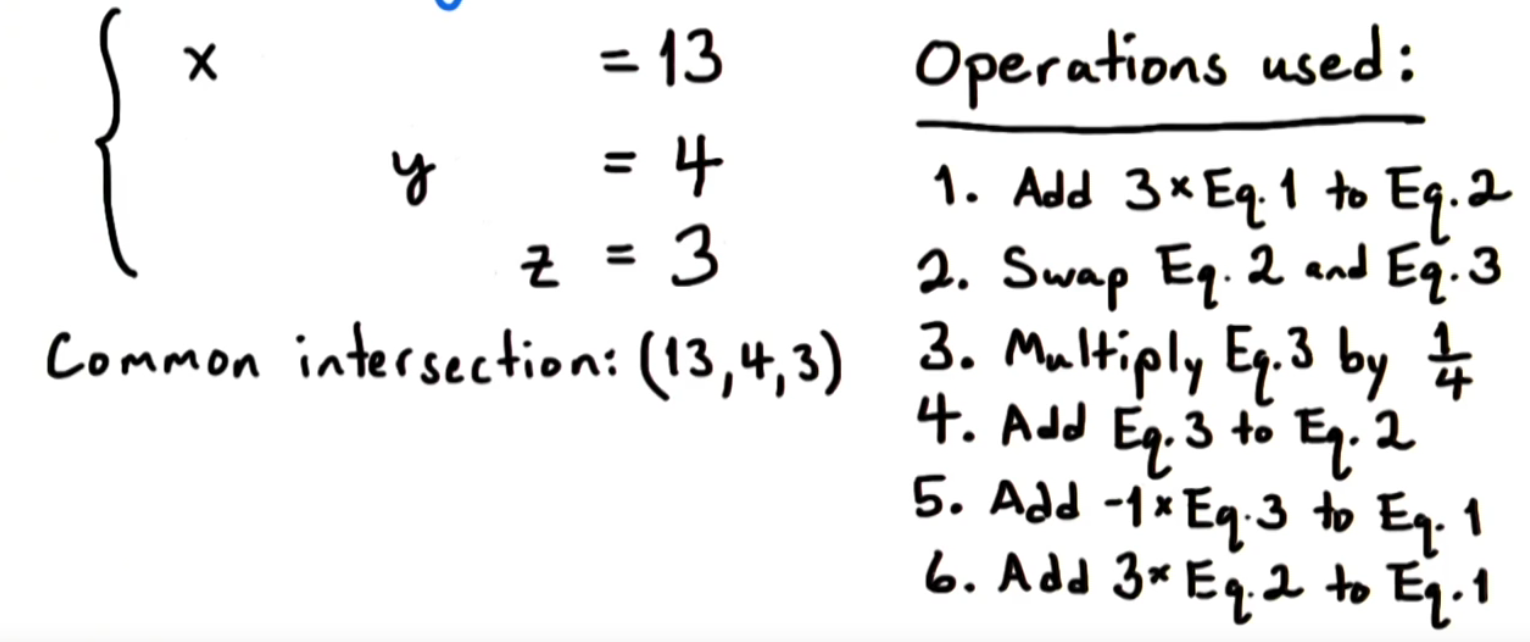 x = 13
y = 4
z = 3
Common intersection: (13,4,3)
Operations used:
1. Add 3×Eq.1 to Eq.2
2. Swap Eq.2 and Eq.3
3. Multiply Eq.3 by 1/4
4. Add Eq.3 to Eq.2
5. Add -1×Eq.3 to Eq.1
6. Add 3×Eq.2 to Eq.1